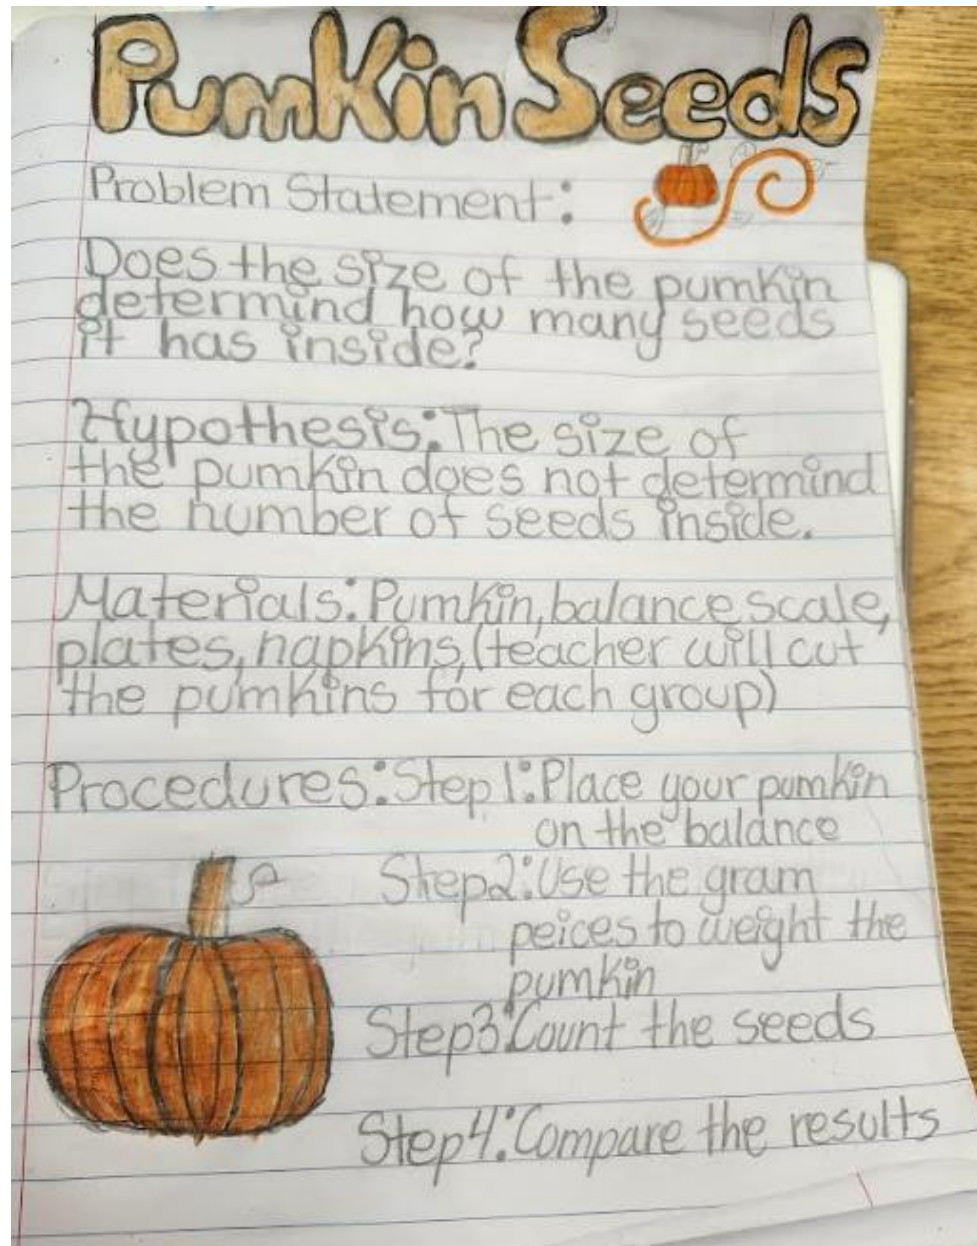 Pumkin Seeds
Problem Statement:
Does the size of the pumkin
determind how many seeds
it has inside?
Hypothesis: The size of
the pumkin does not determind
the number of seeds inside.
Materials: Pumkin, balance scale,
plates, napkins, (teacher will cut
the pumkins for each group)
Procedures: Step 1: Place your pumkin
on the balance
Step 2: Use the gram
peices to weight the
pumkin
Step 3: Count the seeds
Step 4: Compare the results